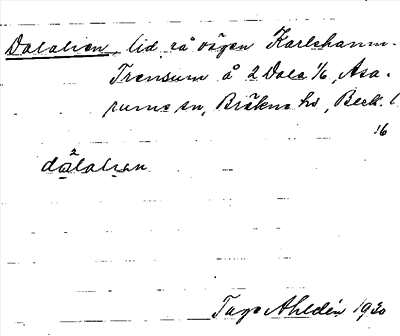 Dalalien, lid på vägen Karlshamn-
Trensum å 2 Dala 1/6, Asa-
rums sn, Bräkne hd, Blek. l.
16
dalalien
Tage Ahldén 1930